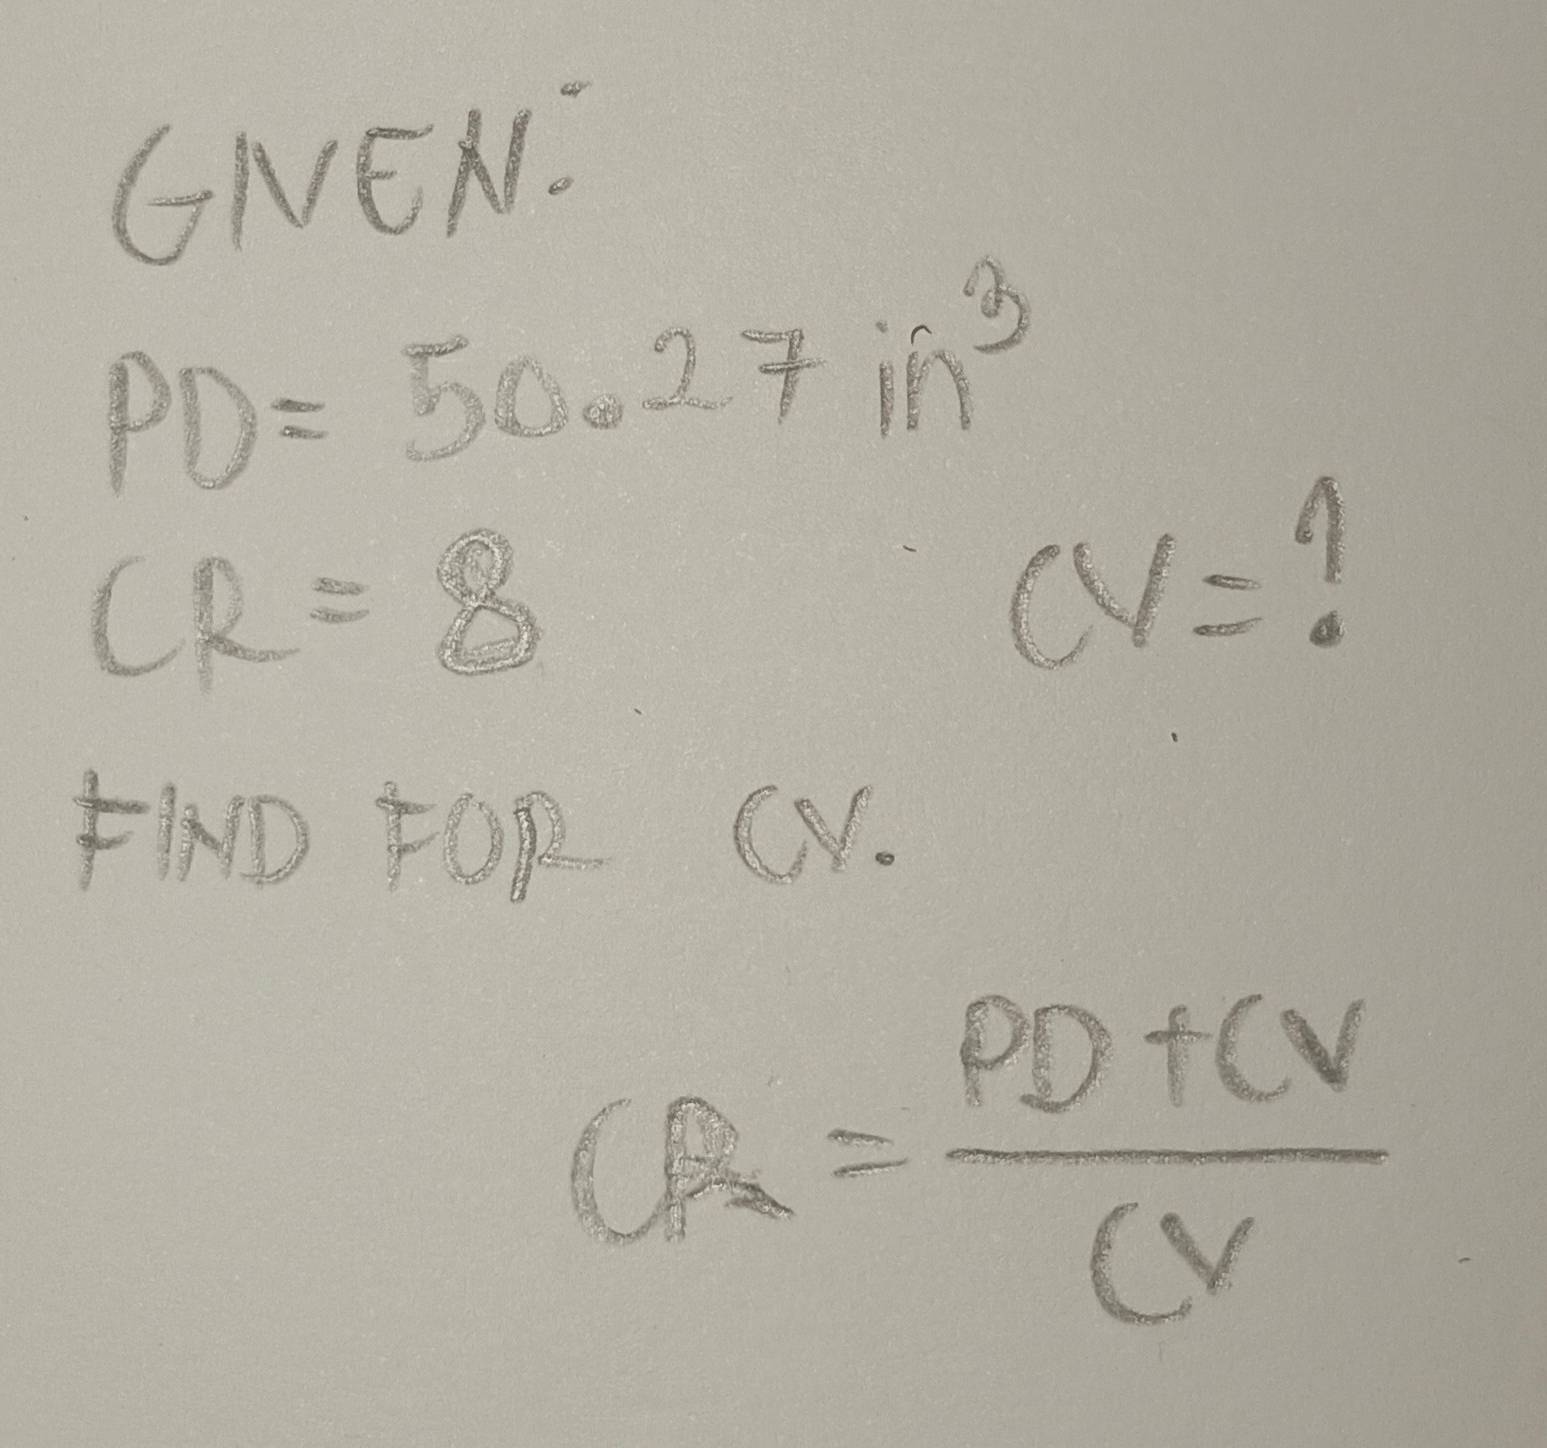 GIVEN:
PD= 50.27 in³
CR = 8 CV = ?
FIND FOR CV.
CR = PD + CV
CV